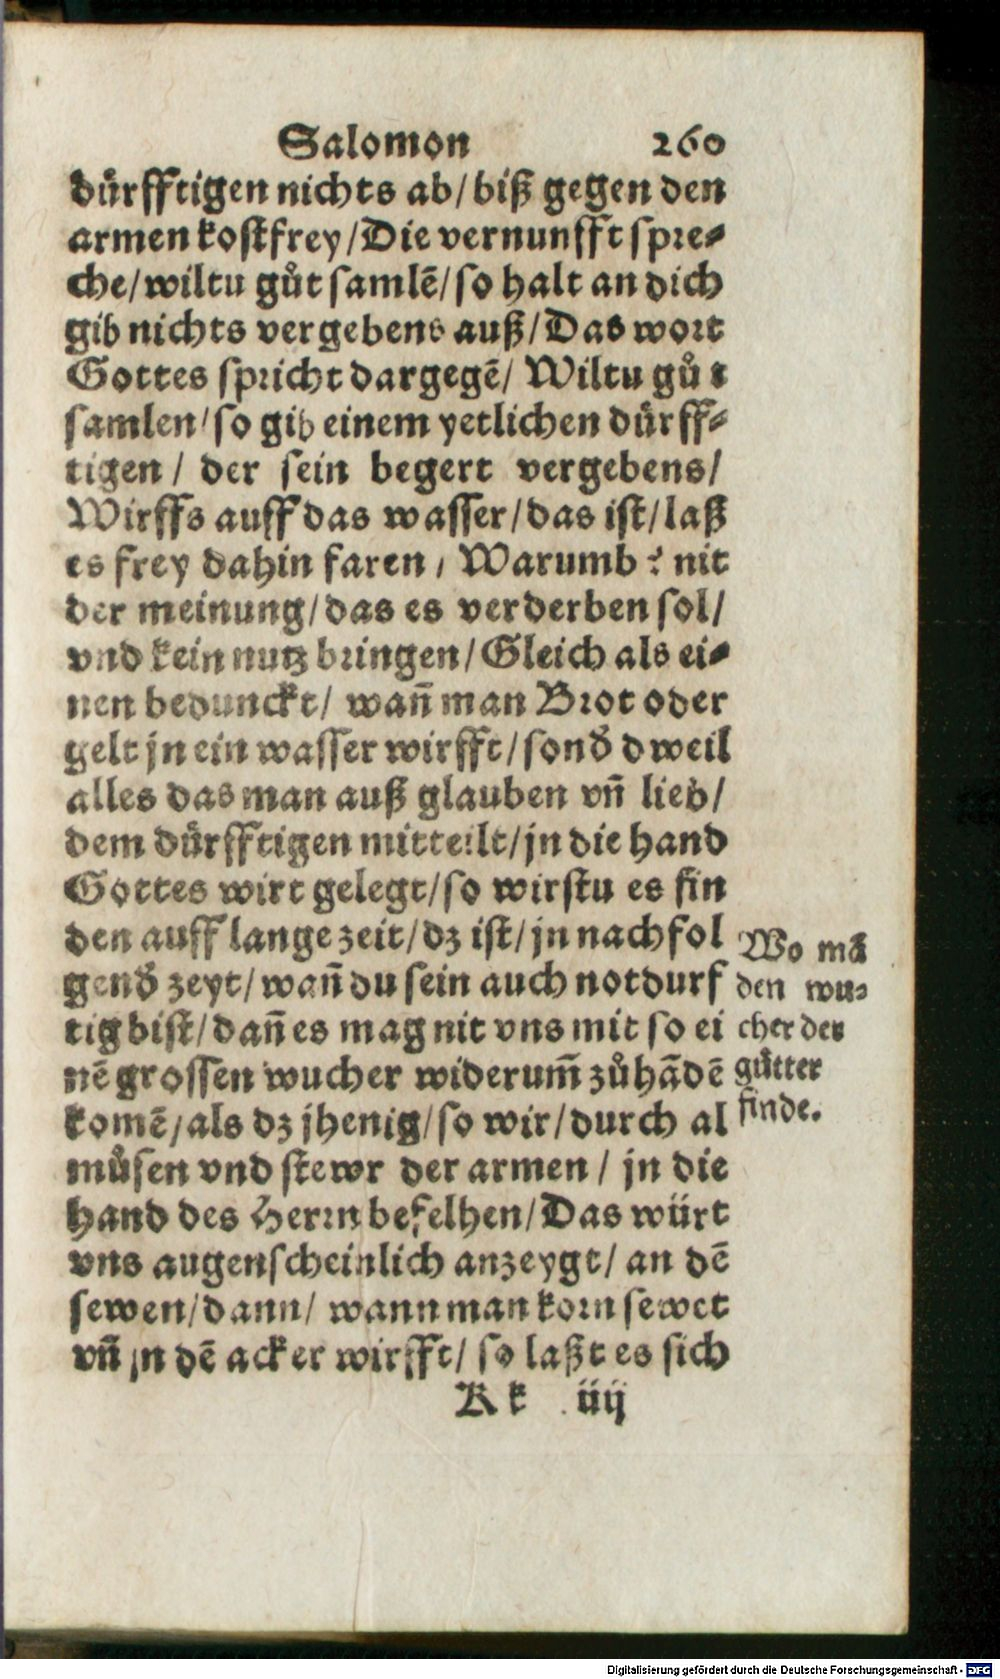 Salomon 260
dürfftigen nichts ab/ biß gegen den
armen kostfrey/ Die vernunfft spre⸗
che/ wiltu gůt samlē/ so halt an dich
gib nichts vergebens auß/ Das wort
Gottes spricht dargegē/ Wiltu gůt
samlen/ so gib einem yetlichen dürff⸗
tigen/ der sein begert vergebens/
Wirffs auff das wasser/ das ist/ laß
es frey dahin faren, Warumb? nit
der meinung/ das es verderben sol/
vnd kein nutz bringen/ Gleich als ei⸗
nen bedunckt/ wañ man Brot oder
gelt jn ein wasser wirfft/ sonđ dweil
alles das man auß glauben vñ lieb/
dem dürfftigen mitteilt/ jn die hand
Gottes wirt gelegt/ so wirstu es fin
den auff lange zeit/ dz ist/ jn nachfol
genđ zeyt/ wañ du sein auch notdurf
tig bist/ dañ es mag nit vns mit so ei
nē grossen wucher widerum̃ zůhādē
komē/ als dz jhenig/ so wir/ durch al
můsen vnd stewr der armen/ jn die
hand des Herrn befelhen/ Das würt
vns augenscheinlich anzeygt/ an dē
sewen/ dann/ wann man korn sewet
vñ jn dē acker wirfft/ so laßt es sich
Kk iiij
Wo mā
den wu⸗
cher der
gütter
finde.
Digitalisierung gefördert durch die Deutsche Forschungsgemeinschaft - DFG